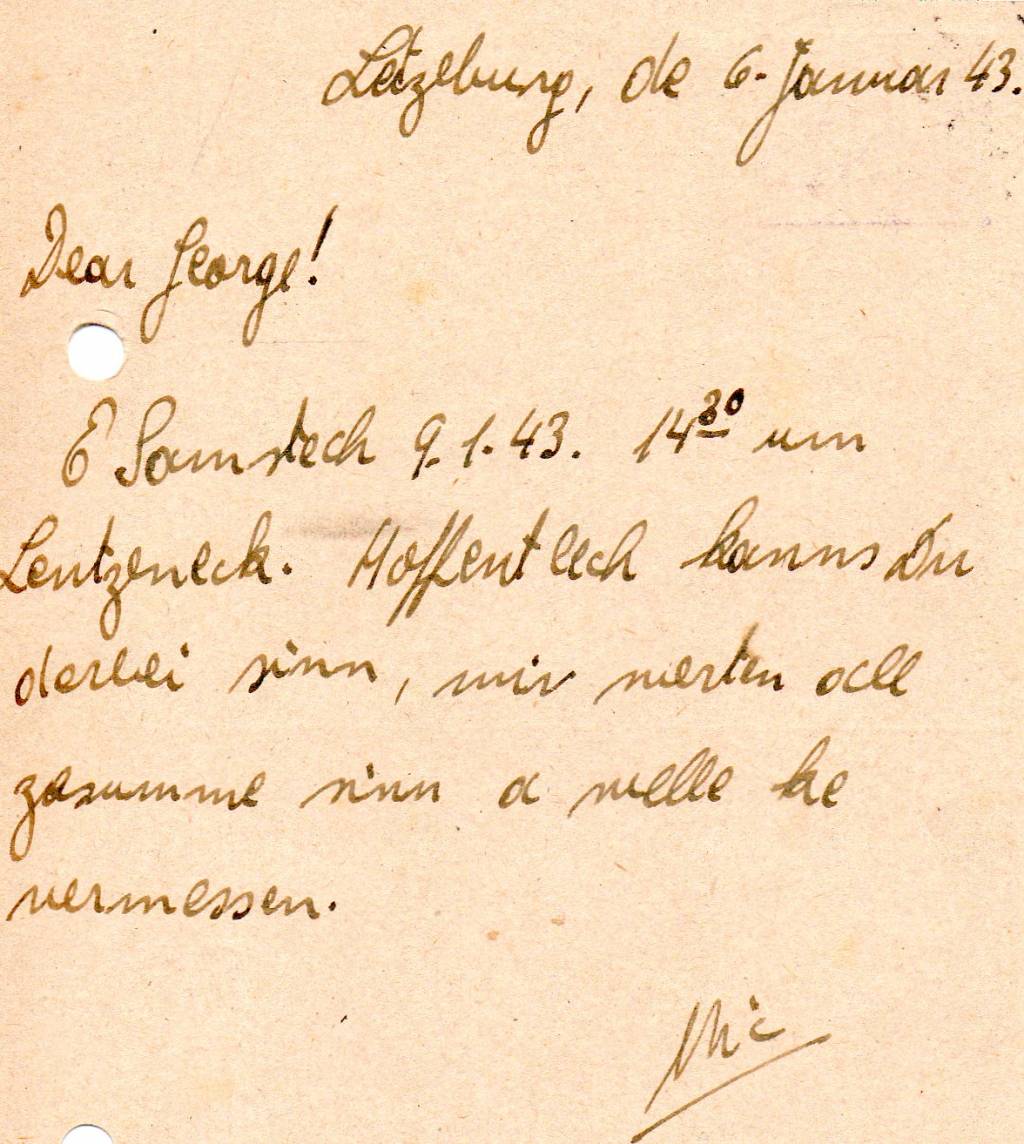 Letzeburg, de 6. Januar 43.
Dear George!
E Samstech 9.1.43. 14³⁰ um
Lentzeneck. Hoffentlech kanns Du
derbei sinn, mir werten all
zesumme sinn a welle ke
vermessen.
Mic